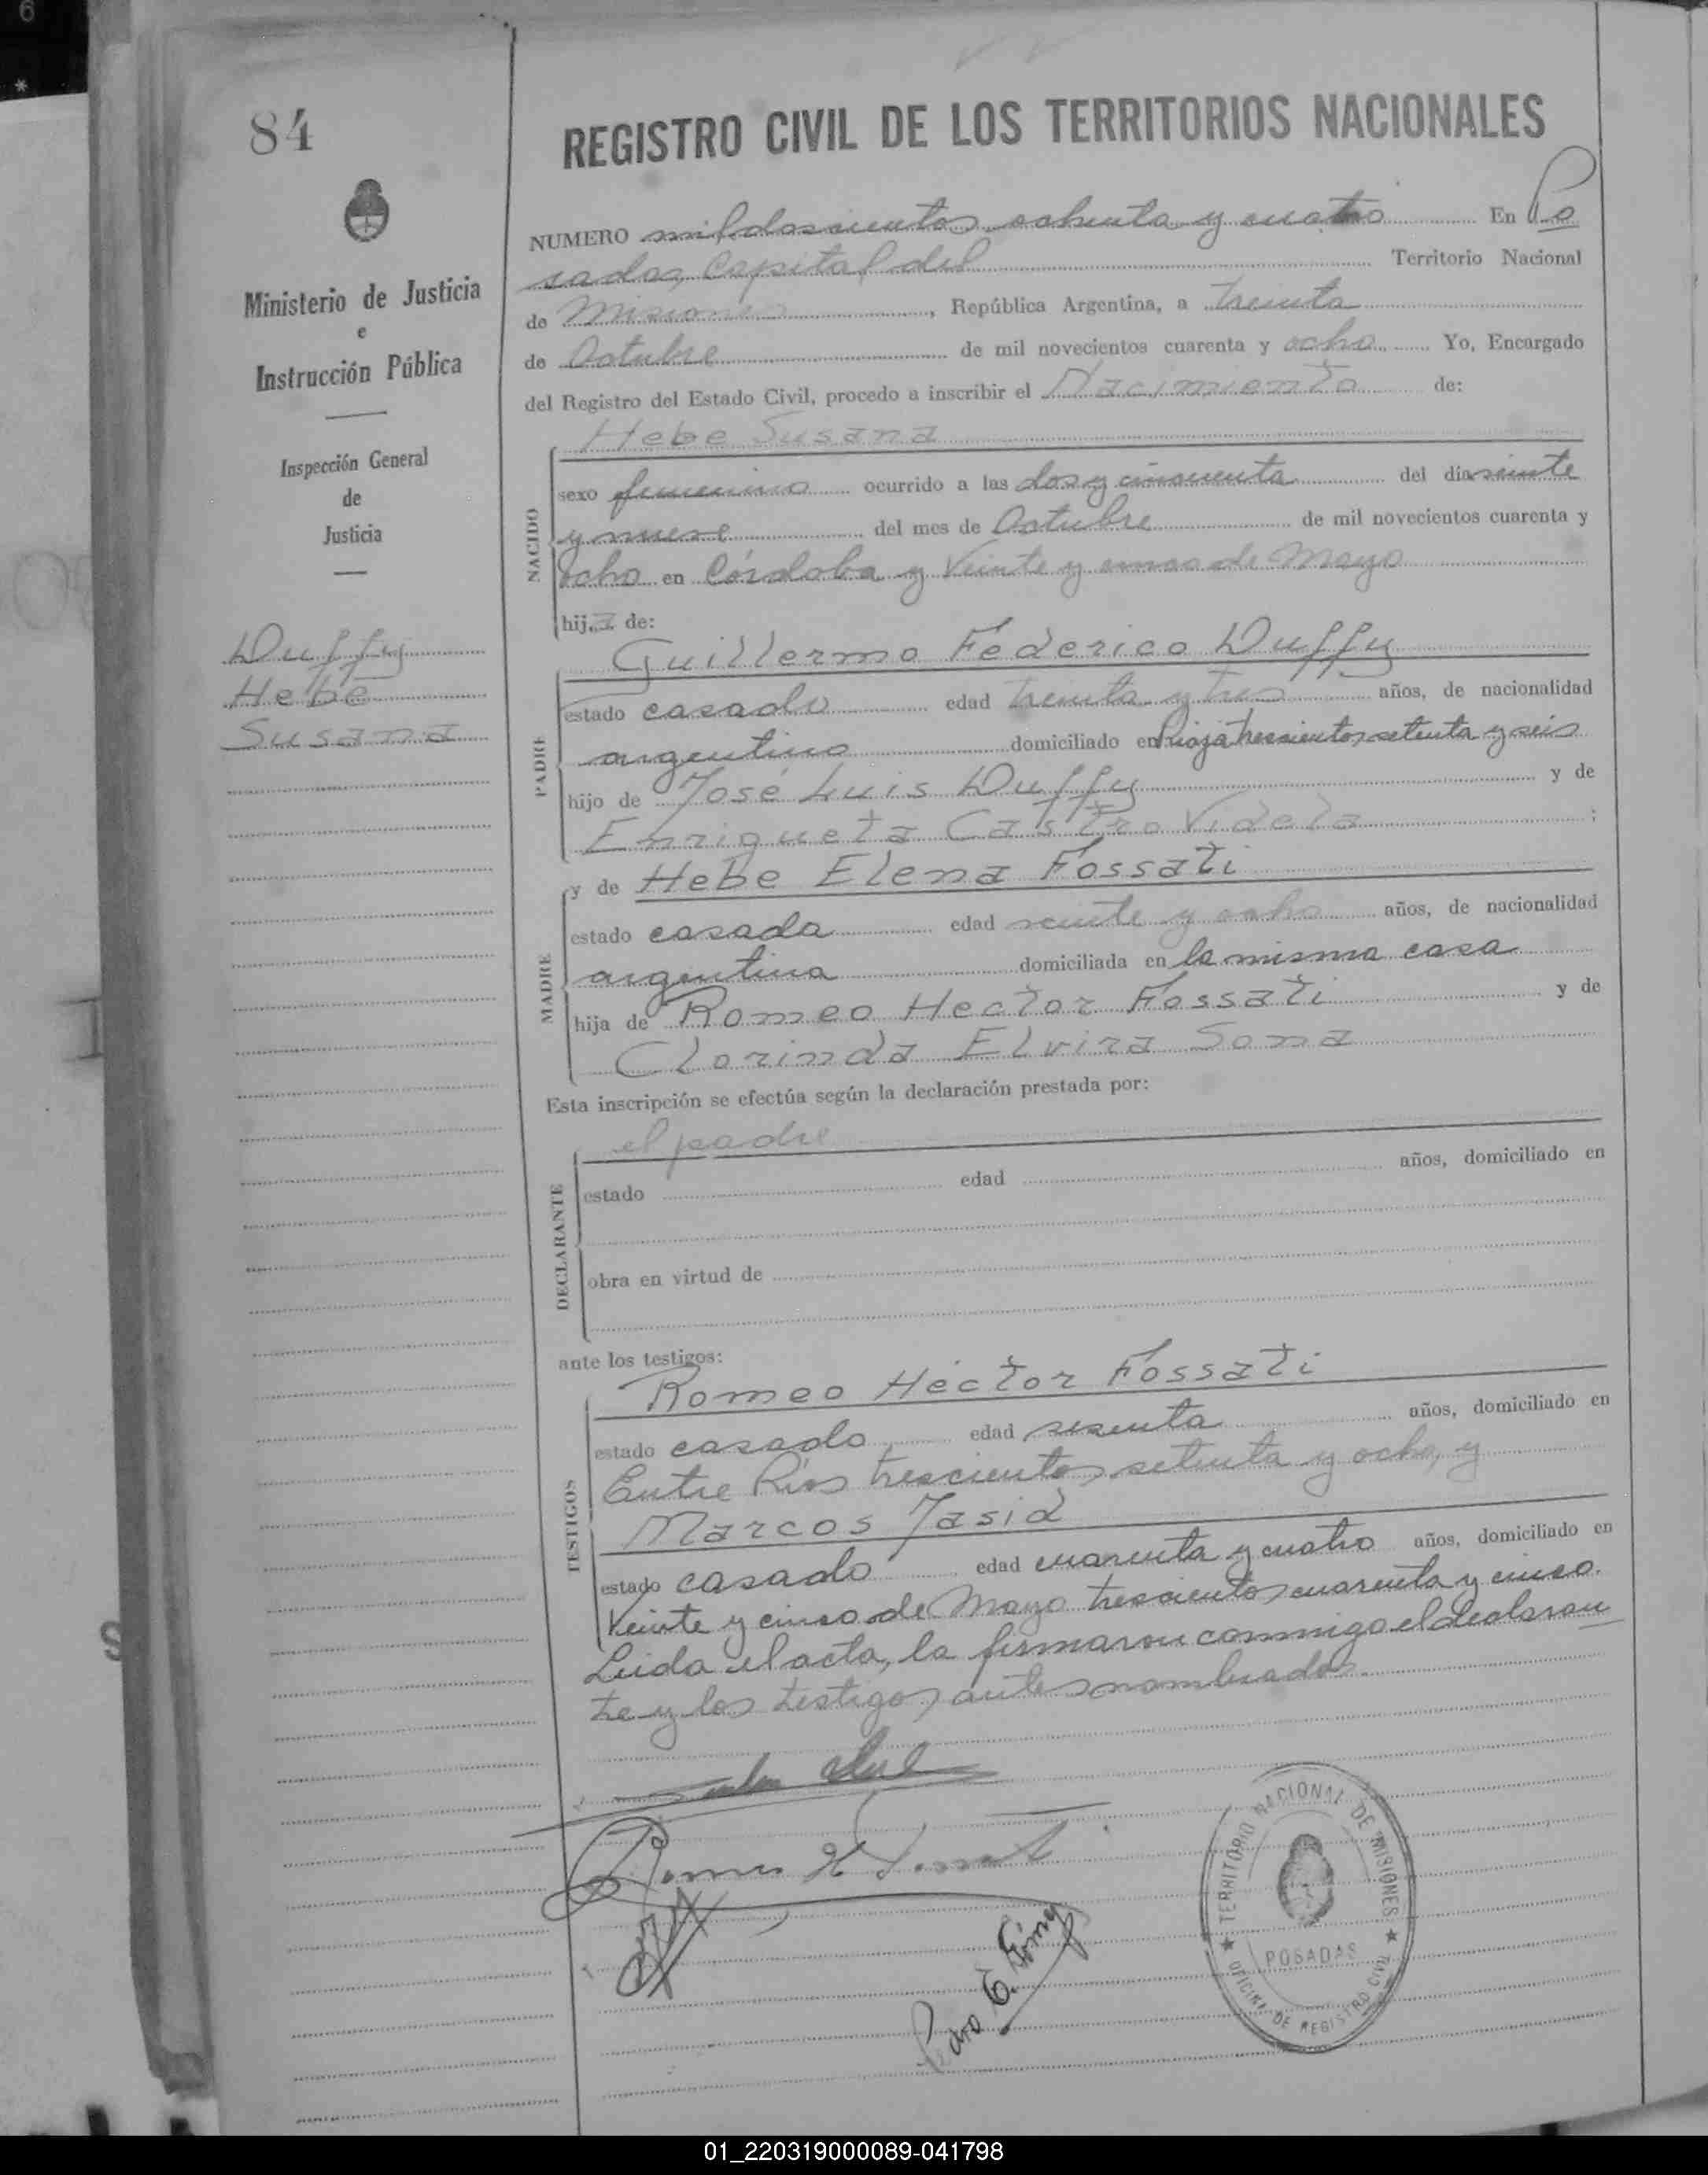 84
REGISTRO CIVIL DE LOS TERRITORIOS NACIONALES
Ministerio de Justicia
e
Instrucción Pública
Inspección General
de
Justicia
Duffy
Hebe
Susana
NUMERO mil doscientos ochenta y cuatro En Po
sadas, Capital del Territorio Nacional
de Misiones, República Argentina, a treinta
de Octubre de mil novecientos cuarenta y ocho Yo, Encargado
del Registro del Estado Civil, procedo a inscribir el Nacimiento de:
Hebe Susana
NACIDO
sexo femenino ocurrido a las dos y cincuenta del día veinte
y nueve del mes de Octubre de mil novecientos cuarenta y
ocho en Córdoba y Veinte y cinco de Mayo
hija de:
Guillermo Federico Duffy
PADRE
estado casado edad treinta y tres años, de nacionalidad
argentino domiciliado en Rioja trescientos setenta y seis
hijo de José Luis Duffy y de
Enriqueta Castro Videla ;
y de Hebe Elena Fossati
MADRE
estado casada edad veinte y ocho años, de nacionalidad
argentina domiciliada en la misma casa
hija de Romeo Hector Fossati y de
Clorinda Elvira Soma
Esta inscripción se efectúa según la declaración prestada por:
el padre
DECLARANTE
estado edad años, domiciliado en
obra en virtud de
ante los testigos:
Romeo Héctor Fossati
TESTIGOS
estado casado edad sesenta años, domiciliado en
Entre Ríos trescientos setenta y ocho, y
Marcos Jasid
estado casado edad cuarenta y cuatro años, domiciliado en
Veinte y cinco de Mayo trescientos cuarenta y cinco.
Leida el acta, la firmaron conmigo el declaran
te y los testigos antes nombrados.
Pedro E. Gómez
TERRITORIO NACIONAL DE MISIONES
POSADAS
OFICINA DE REGISTRO CIVIL
01_220319000089-041798